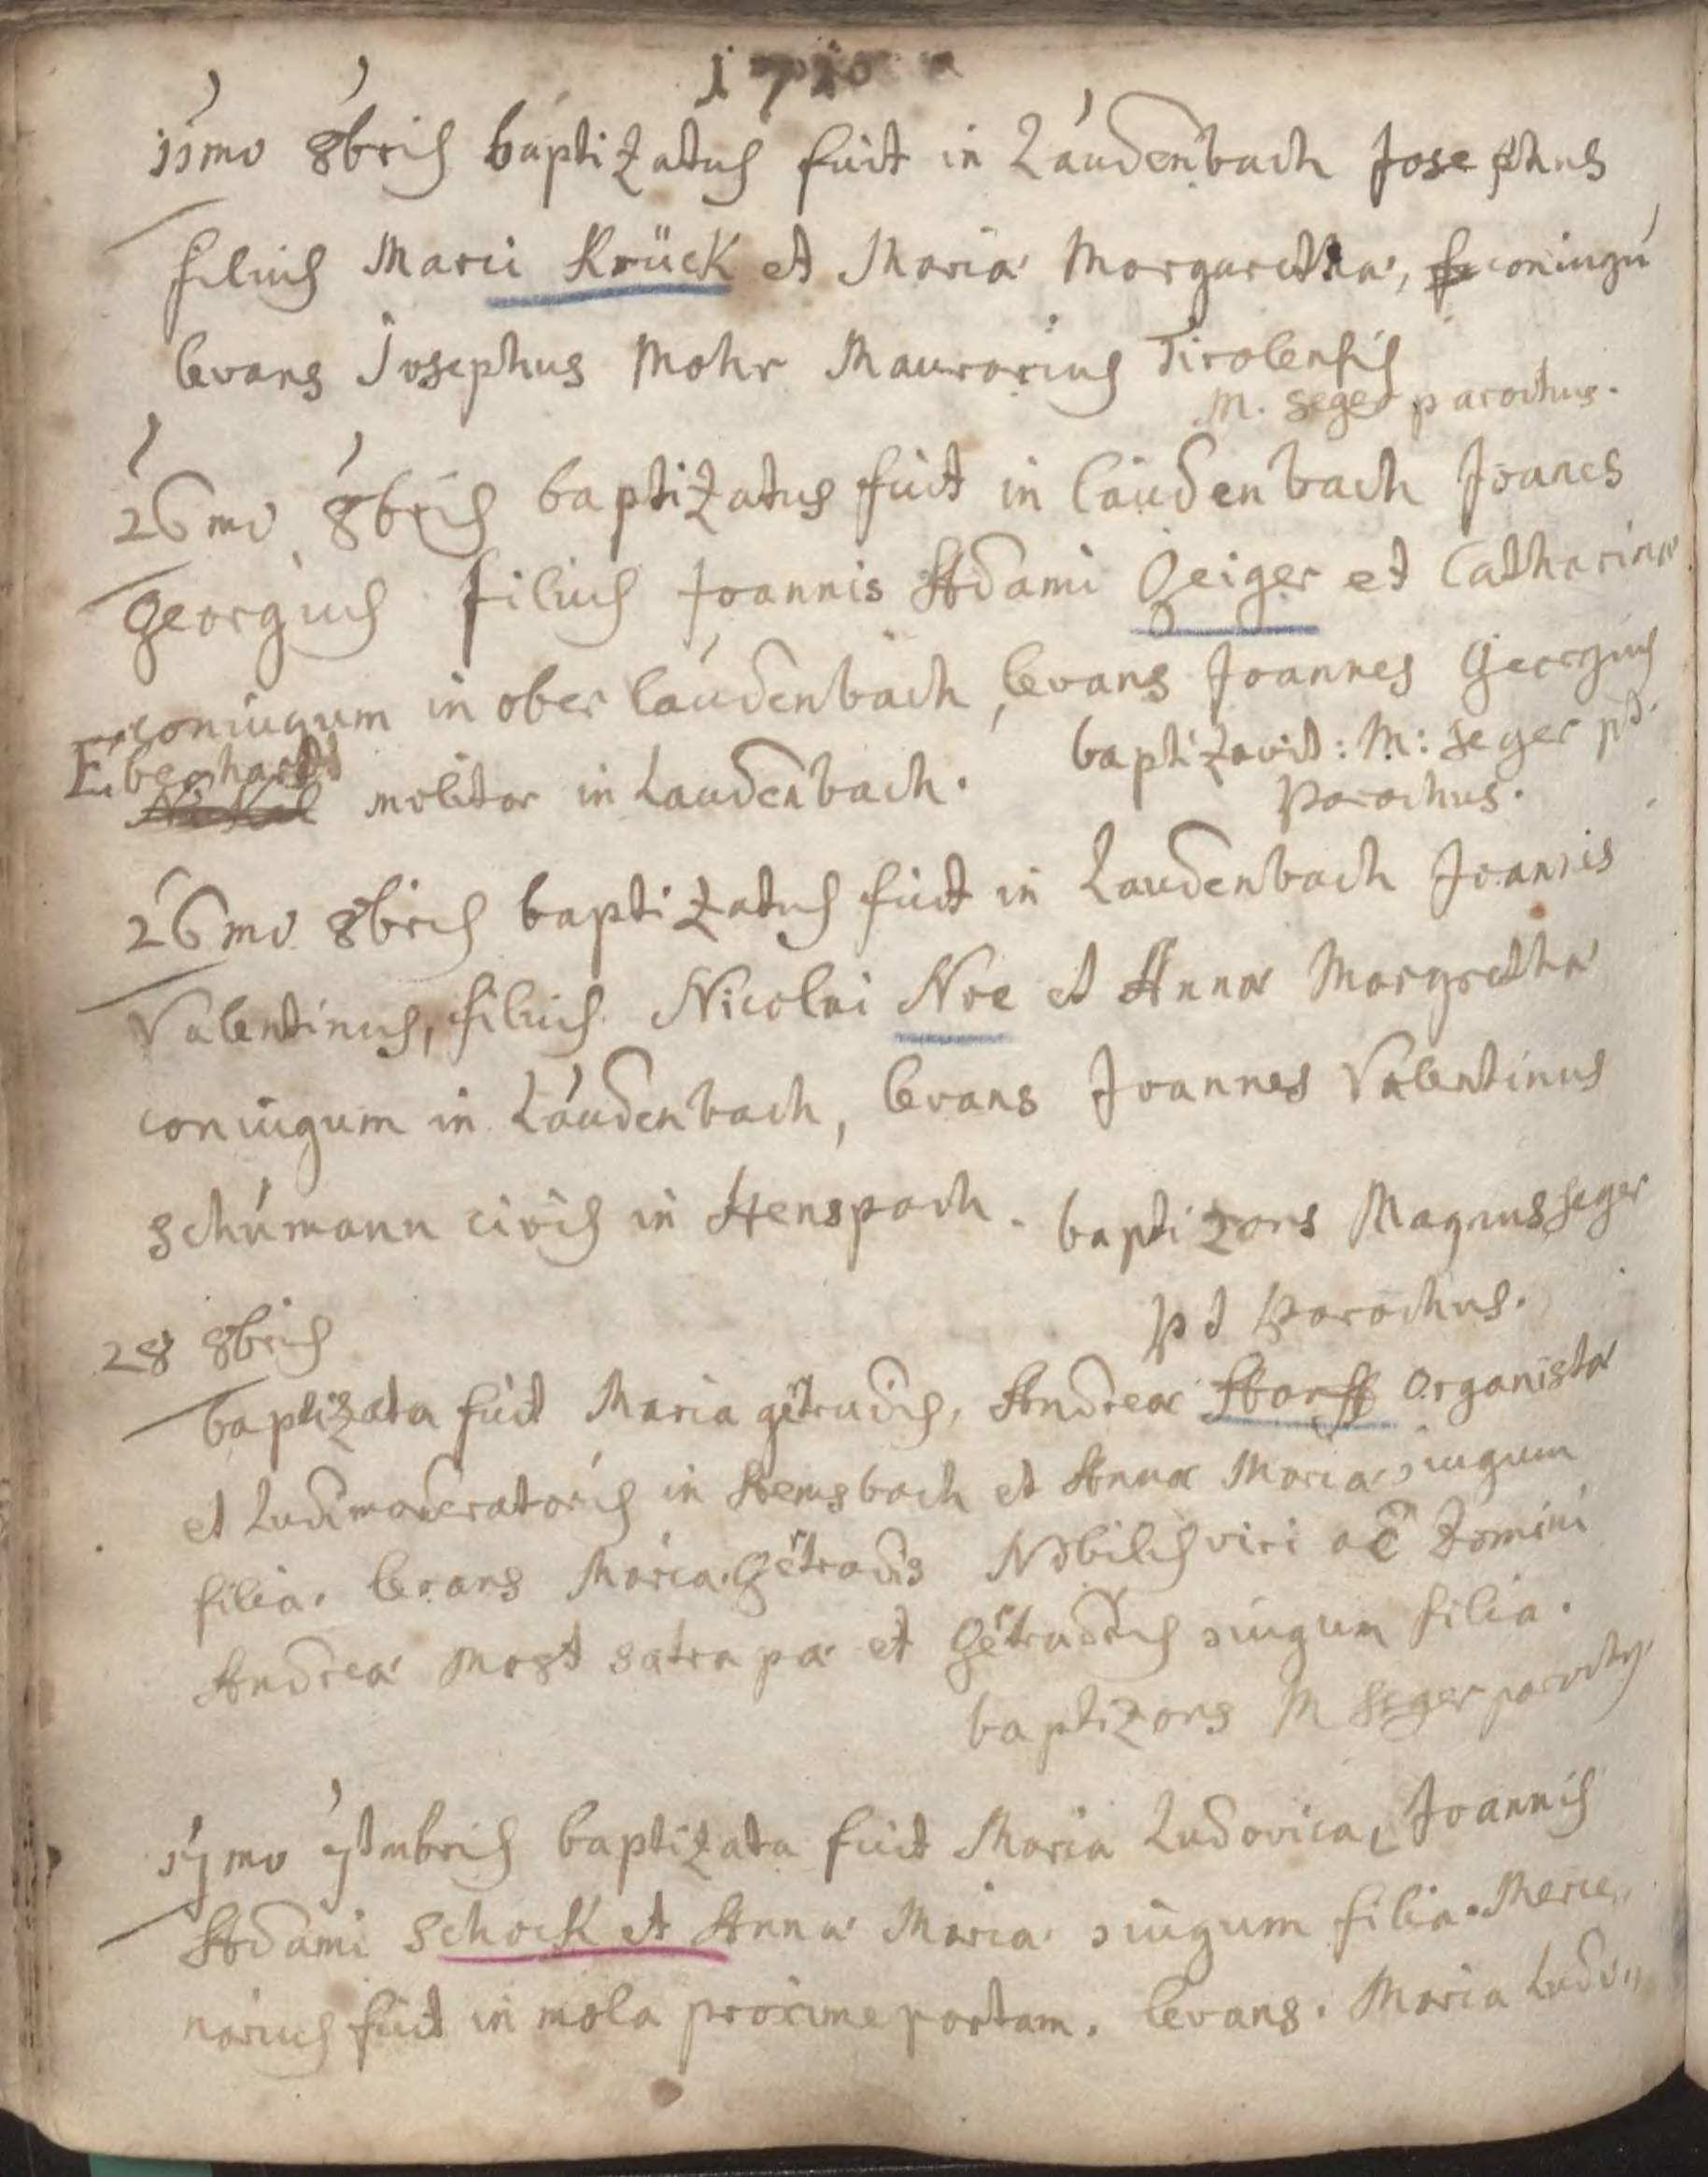 1710
11mo 8bris baptizatus fuit in Laudenbach Josephus
filius Marci Krück et Mariæ Margarethæ, coniugū
levans Josephus Mohr Maurarius Tirolensis
M. Seger parochus.
26mo 8bris baptizatus fuit in laudenbach Joanes
Georgius filius Joannis Adami Geiger et Catharinæ
coniugum in ober laudenbach, levans Joannes Georgius
Eberhardt molitor in Laudenbach. baptizavit: M: Seger pt.
Parochus.
26mo 8bris baptizatus fuit in Laudenbach Joannis
Valentinus, filius Nicolai Noe et Annæ Margrethæ
coniugum in Laudenbach, levans Joannes Valentinus
Schumann civis in Henspach. baptizans Magnus Seger
pt Parochus.
28 8bris
baptizata fuit Maria getrudis, Andreæ Organistæ
et Ludimoderatoris in Hemsbach et Annæ Mariæ ɔiugum
filia. levans Maria Getrudis Nobilis viri ac Domini
Andreæ Most satrapæ et Getrudis ɔiugum filia.
baptizans M Seger parochus
baptizata fuit Maria Ludovica, Joannis
Adami Schock et Annæ Mariæ ɔiugum filia. Merce„
narius fuit in mola proxime portam. levans. Maria Ludo„